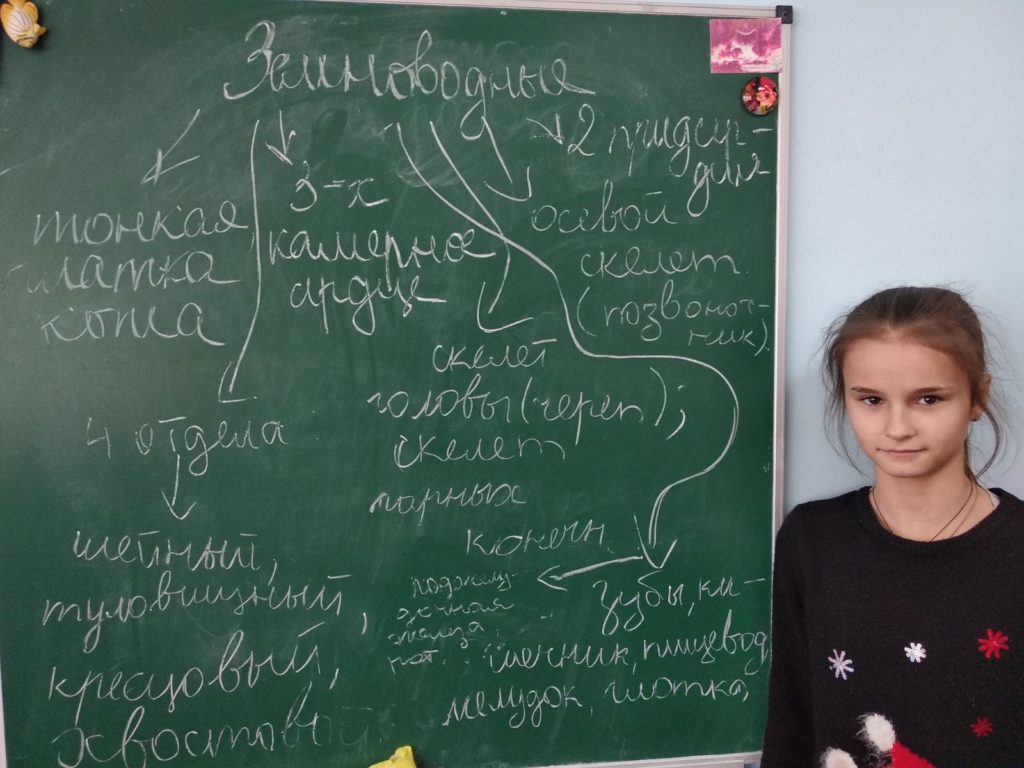 Земноводные
тонкая
кожа
3-х
камерное
сердце
2 предсер-
дия
осевой
скелет
(позвоноч-
ник).
скелет
головы (череп);
скелет
парных
конечн.
4 отдела
шейный,
туловищный,
кресцовый,
хвостовой.
поджелу-
дочная
железа,
рот.
зубы, ки-
шечник, пищевод,
желудок, глотка,